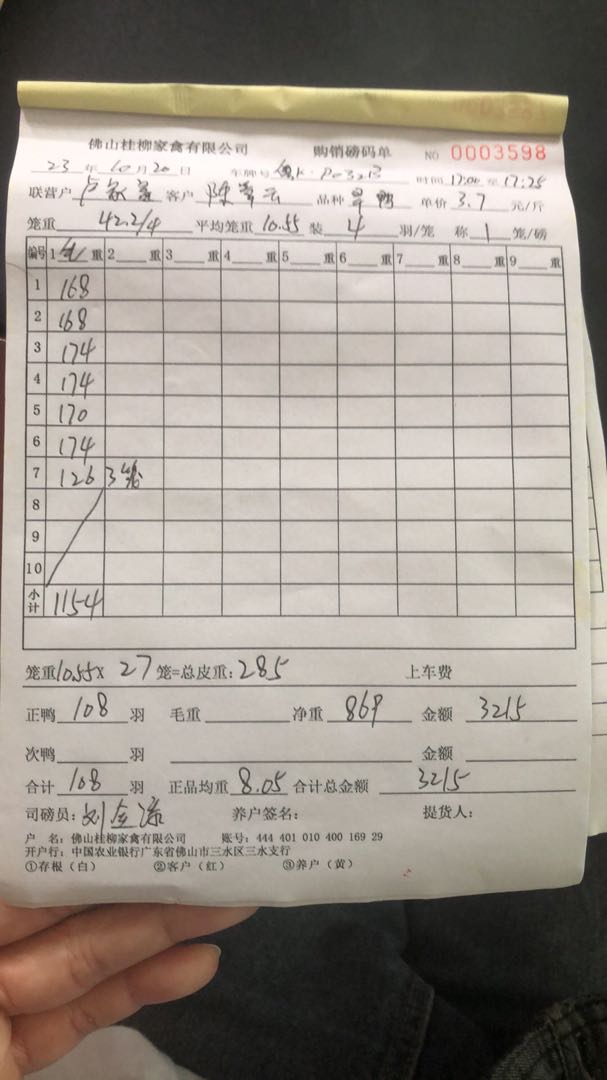 佛山桂柳家禽有限公司 购销磅码单 NO 0003598
23 年 10 月 20 日 车牌号 时间 17:00 至 17:25
联营户 客户 陈 云 品种 单价 3.7 元/斤
笼重 42.2/4 平均笼重 10.55 装 4 羽/笼 称 1 笼/磅
编号 1 重 2 重 3 重 4 重 5 重 6 重 7 重 8 重 9 重
1 168
2 168
3 174
4 174
5 170
6 174
7 126 3笼
8
9
10
小计 1154
笼重10.55× 27 笼=总皮重: 285 上车费
正鸭 108 羽 毛重 净重 869 金额 3215
次鸭 羽 金额
合计 108 羽 正品均重 8.05 合计总金额 3215
司磅员: 刘金 养户签名: 提货人:
户 名: 佛山桂柳家禽有限公司 账号: 444 401 010 400 169 29
开户行: 中国农业银行广东省佛山市三水区三水支行
①存根(白) ②客户(红) ③养户(黄)